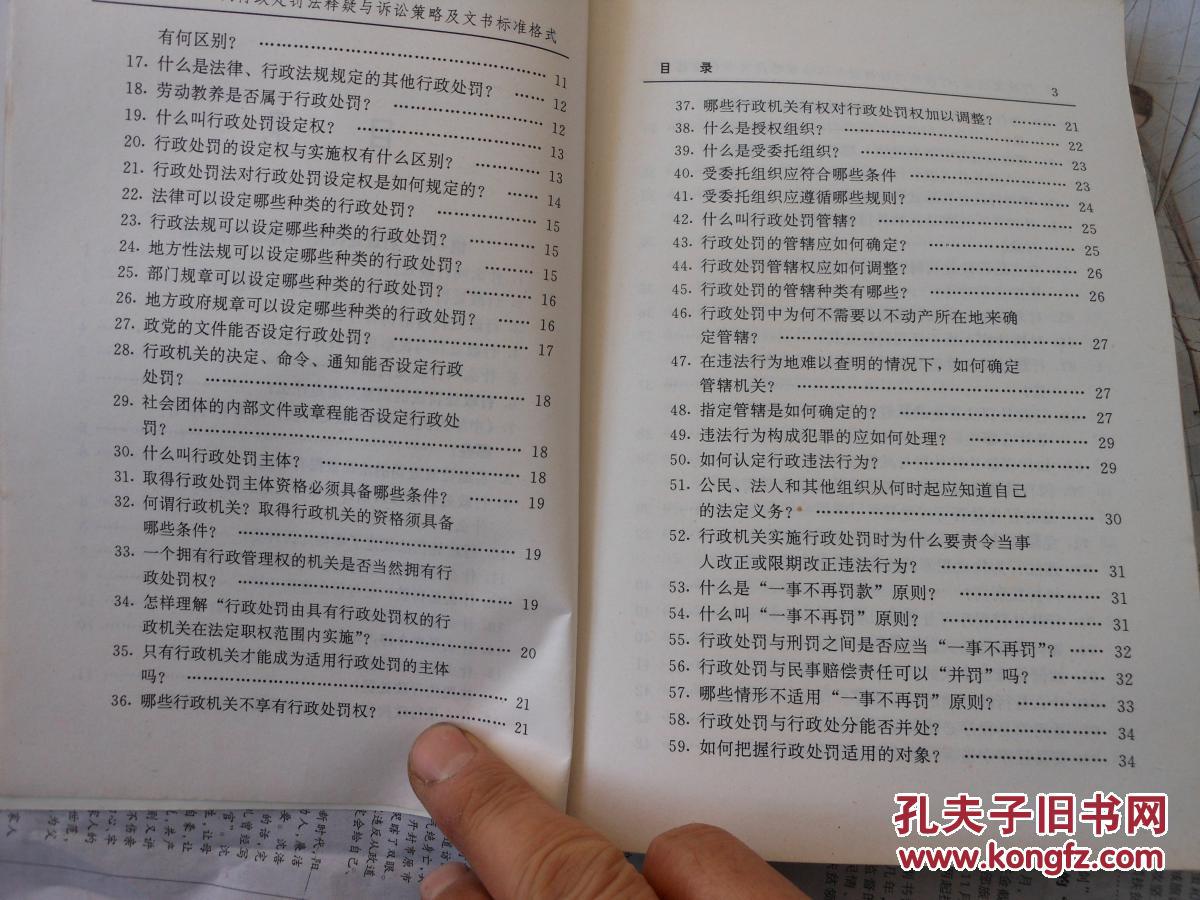 行政处罚法释疑与诉讼策略及文书标准格式
有何区别? …… 11
17. 什么是法律、行政法规规定的其他行政处罚? …… 12
18. 劳动教养是否属于行政处罚? …… 12
19. 什么叫行政处罚设定权? …… 13
20. 行政处罚的设定权与实施权有什么区别? …… 13
21. 行政处罚法对行政处罚设定权是如何规定的? …… 14
22. 法律可以设定哪些种类的行政处罚? …… 15
23. 行政法规可以设定哪些种类的行政处罚? …… 15
24. 地方性法规可以设定哪些种类的行政处罚? …… 15
25. 部门规章可以设定哪些种类的行政处罚? …… 16
26. 地方政府规章可以设定哪些种类的行政处罚? …… 16
27. 政党的文件能否设定行政处罚? …… 17
28. 行政机关的决定、命令、通知能否设定行政
处罚? …… 18
29. 社会团体的内部文件或章程能否设定行政处
罚? …… 18
30. 什么叫行政处罚主体? …… 18
31. 取得行政处罚主体资格必须具备哪些条件? …… 19
32. 何谓行政机关? 取得行政机关的资格须具备
哪些条件? …… 19
33. 一个拥有行政管理权的机关是否当然拥有行
政处罚权? …… 19
34. 怎样理解“行政处罚由具有行政处罚权的行
政机关在法定职权范围内实施”? …… 20
35. 只有行政机关才能成为适用行政处罚的主体
吗? …… 21
36. 哪些行政机关不享有行政处罚权? …… 21
目 录 3
37. 哪些行政机关有权对行政处罚权加以调整? …… 21
38. 什么是授权组织? …… 22
39. 什么是受委托组织? …… 23
40. 受委托组织应符合哪些条件 …… 23
41. 受委托组织应遵循哪些规则? …… 24
42. 什么叫行政处罚管辖? …… 25
43. 行政处罚的管辖应如何确定? …… 25
44. 行政处罚管辖权应如何调整? …… 26
45. 行政处罚的管辖种类有哪些? …… 26
46. 行政处罚中为何不需要以不动产所在地来确
定管辖? …… 27
47. 在违法行为地难以查明的情况下，如何确定
管辖机关? …… 27
48. 指定管辖是如何确定的? …… 27
49. 违法行为构成犯罪的应如何处理? …… 29
50. 如何认定行政违法行为? …… 29
51. 公民、法人和其他组织从何时起应知道自己
的法定义务? …… 30
52. 行政机关实施行政处罚时为什么要责令当事
人改正或限期改正违法行为? …… 31
53. 什么是“一事不再罚款”原则? …… 31
54. 什么叫“一事不再罚”原则? …… 31
55. 行政处罚与刑罚之间是否应当“一事不再罚”? …… 32
56. 行政处罚与民事赔偿责任可以“并罚”吗? …… 32
57. 哪些情形不适用“一事不再罚”原则? …… 33
58. 行政处罚与行政处分能否并处? …… 34
59. 如何把握行政处罚适用的对象? …… 34
孔夫子旧书网
www.kongfz.com